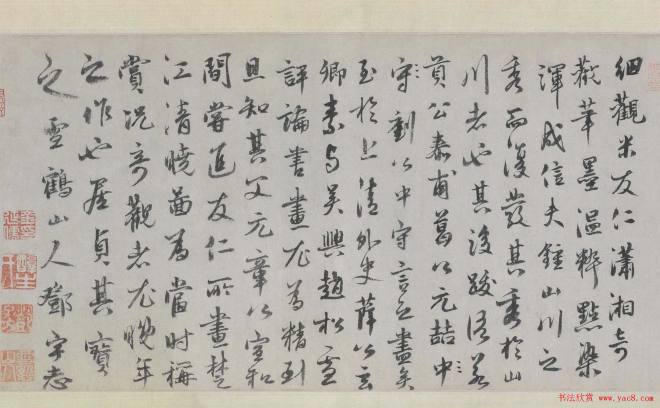 細觀米友仁瀟湘奇
觀筆墨溫粹點染
渾成信夫鍾山川之
秀而復發其秀於山
川者也其後跋須若
貢公泰甫葛公元喆中
守劉公中守言之盡矣
至於上清外史薛公玄
卿素與吳興趙松雪
評論書畫尤為精到
且知其父元章以宣和
間嘗進友仁所畫楚
江清曉圖為當時稱
賞況奇觀者尤晚年
之作也居貞其寶
之雪鶴山人鄧宇志
书法欣赏 www.yac8.com